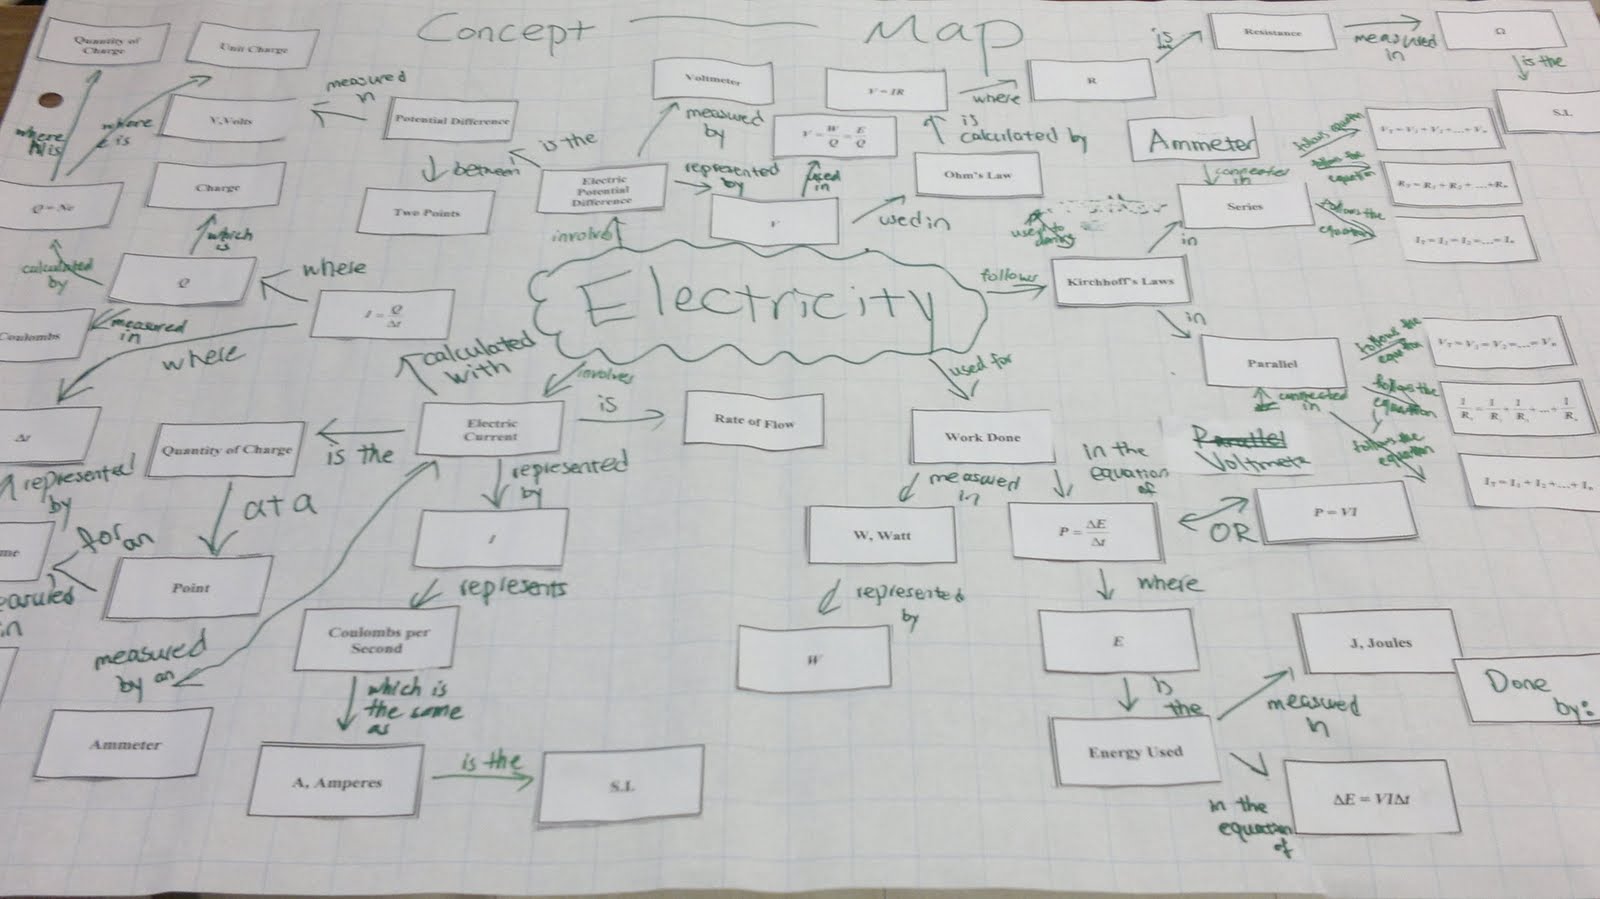 Concept Map
Quantity of
Charge
Unit Charge
Voltmeter
V = IR
where
R
is
Resistance
measured
in
Ω
is the
S.I.
where
N is
where
e is
V,Volts
measured
in
Potential Difference
is the
between
Two Points
Electric
Potential
Difference
measured
by
represented
by
V = W/Q = E/Q
used
in
V
used in
is
calculated by
Ohm's Law
Ammeter
connected
in
Series
follows equation
V_T = V_1 + V_2 + ... + V_n
follows the
equation
R_T = R_1 + R_2 + ... + R_n
follows the
equation
I_T = I_1 = I_2 = ... = I_n
Q = Ne
Charge
which
is
calculated
by
Q
where
I = Q/Δt
involves
Electricity
follows
Kirchhoff's Laws
in
in
Coulombs
measured
in
where
calculated
with
involves
used for
Parallel
follows the
equation
V_T = V_1 = V_2 = ... = V_n
follows the
equation
1/R_t = 1/R_1 + 1/R_2 + ... + 1/R_n
connected
in
follows the
equation
I_T = I_1 + I_2 + ... + I_n
Parallel
Voltmeter
Δt
represented
by
Quantity of Charge
is the
Electric
Current
is
Rate of Flow
Work Done
at a
Point
for an
represented
by
I
represents
Coulombs per
Second
which is
the same
as
A, Amperes
is the
S.I.
measured
by an
Ammeter
measured
in
W, Watt
represented
by
W
in the
equation
of
P = ΔE/Δt
OR
P = VI
where
E
is
the
Energy Used
measured
in
J, Joules
in the
equation
of
ΔE = VIΔt
Done
by: